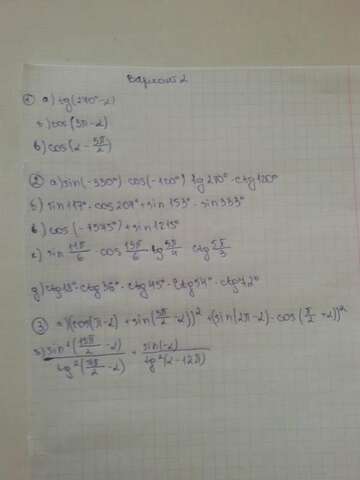 Вариант 2
① а) tg(270°-α)
б) cos(3π-α)
в) cos(α-5π/2)
② а) sin(-330°) cos(-120°) tg 210° · ctg 120°
б) sin 117° · cos 207° + sin 153° · sin 333°
в) cos(-7575°) + sin 1215°
г) sin 11π/6 · cos 13π/6 · tg 5π/4 · ctg 5π/3
д) ctg 18° · ctg 36° · ctg 45° · ctg 54° · ctg 72°
③ а) (cos(π-α) + sin(5π/2-α))² + (sin(2π-α) · cos(π/2+α))²
sin(-α)